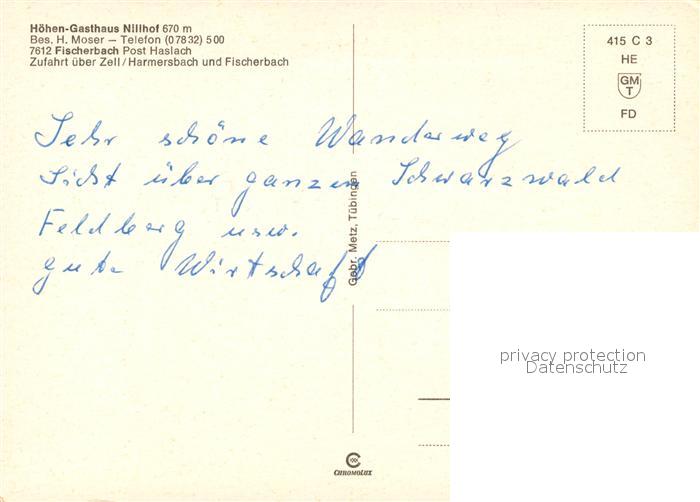 Höhen-Gasthaus Nillhof 670 m
Bes. H. Moser – Telefon (07832) 500
7612 Fischerbach Post Haslach
Zufahrt über Zell/Harmersbach und Fischerbach
415 C 3
HE
GM
T
FD
Sehr schöne Wanderweg
Sicht über ganzen Schwarzwald
Feldberg usw.
gute Wirtschaft
Gebr. Metz, Tübingen
privacy protection
Datenschutz
CHROMOLUX